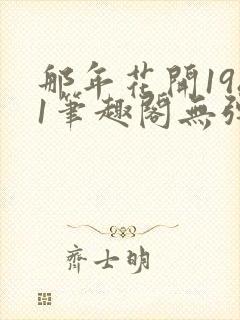 那年花開19
1筆趣閣無
齊士明